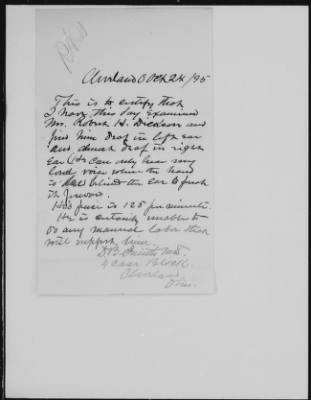 Cleveland O Oct 24/95
This is to certify that
I have this day examined
Mr. Robert H. Dickson and
find him deaf in left ear
and almost deaf in right
Ear (He can only hear my
loudest voice when the hand
is held behind the Ear & push
it forward.
His pulse is 125 per minute.
He is entirely unable to
do any manual labor that
will support him.
Smith M.D.
4 Case Block
Cleveland
Ohio.